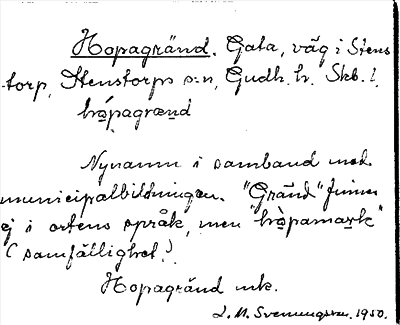 Hopagränd. Gata, väg i Stens
torp, Stenstorps s:n, Gudh. h. Skb. l.
hò̱pagrænd
Nynamn i samband med
municipalbildningen. "Gränd" finnes
ej i ortens språk, men "hò̱pamark"
(samfällighet).
Hopagränd mk.
L. M. Svenungsson. 1950.